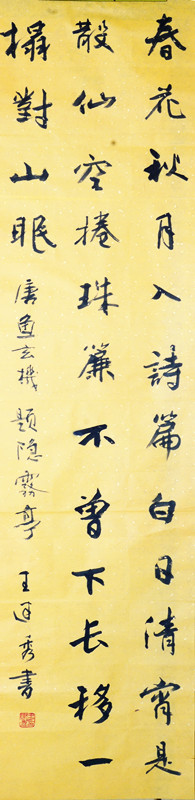 春花秋月入詩篇白日清宵是
散仙空捲珠簾不曾下長移一
榻對山眠
唐魚玄機題隐霧亭
王秀書